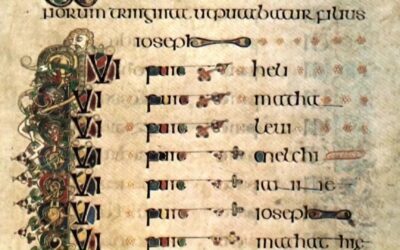 norum triginta ut putabatur filius
ioseph
QUI fuit heli
QUI fuit matha
QUI fuit leui
QUI fuit melchi
QUI fuit
QUI fuit ioseph
QUI fuit mathat